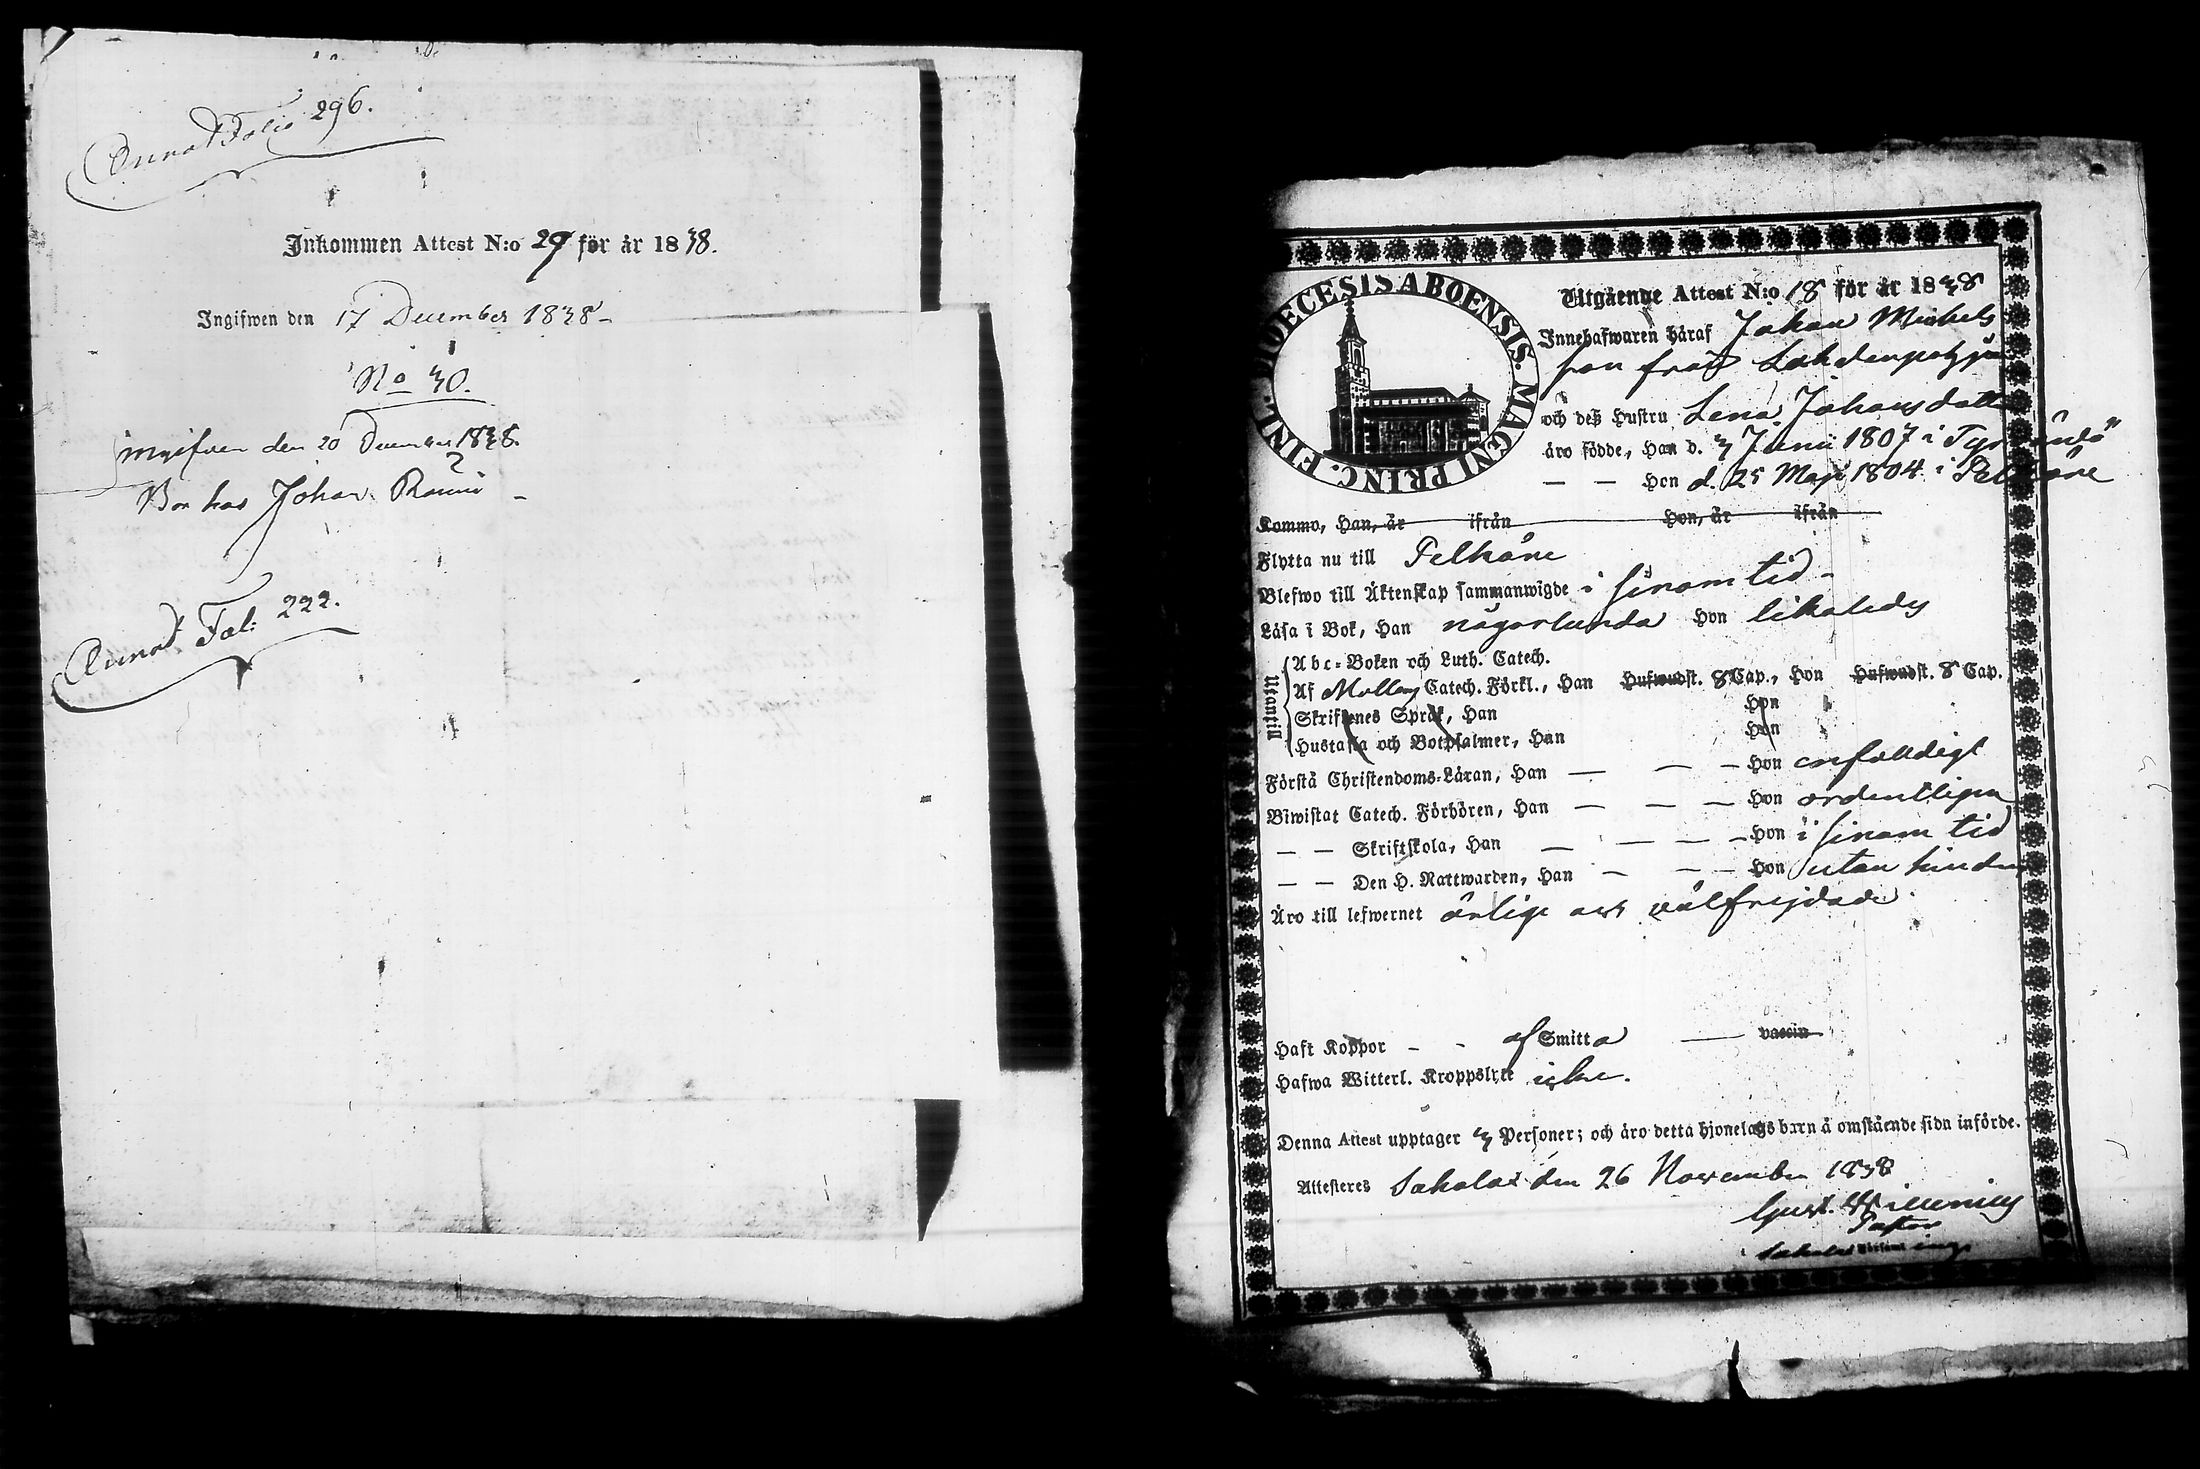 Annot Folio 296.
Inkommen Attest N:o 29 för år 1838.
Ingifwen den 17 December 1838
No 30.
ingifven den 20 December 1838.
Bor hos Johan
Annot Fol: 222.
DIOECESIS ABOENSIS. MAGNI PRINC. FINL.
Utgående Attest N:o 18 för år 1838
Innehafwaren häraf Johan Michels
son från Lahdenpohja
och deß Hustru Lena Johansdotter
äro födde, Han d. 3 Junii 1807 i Tyrvändö
— — Hon d. 25 Maji 1804 i Pelkäne
Komma, Han, är ifrån Hon, är ifrån
Flytta nu till Pelkäne
Blefwo till Äktenskap sammanwigde i sinom tid
Läsa i Bok, Han någorlunda Hon likaledes
Utantill
Abc-Boken och Luth. Catech.
Af Mollers Catech. Förkl., Han Hufwudst. 8 Cap., Hon Hufwudst. 8 Cap.
Skriftenes Språk, Han Hon
Hustafla och Botpsalmer, Han Hon
Förstå Christendoms-Läran, Han — — — Hon enfaldigt
Biwistat Catech. Förhören, Han — — — Hon ordentligen
— — Skriftskola, Han — — — Hon i sinom tid
— — Den H. Nattwarden, Han — — — Hon utan hinder
Äro till lefwernet ärlige och välfrejdade
Haft Koppor - - af Smitta — vaccin
Hafwa Witterl. Kroppslyte icke.
Denna Attest upptager 3 Personer; och äro detta hjonelags barn å omstående sida införde.
Attesteres Sahalax den 26 November 1838
Gust.
Pastor
i Sahalax Församling